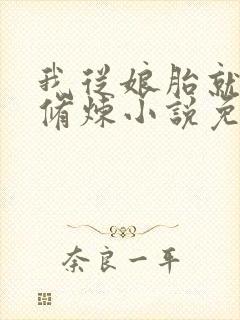 我從娘胎就
脩煉小說免
奈良一平